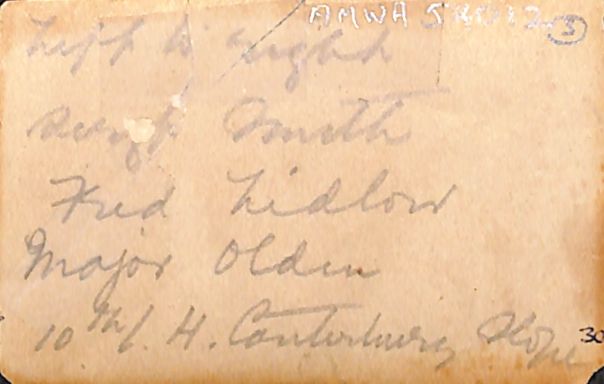 AMWA 58012 5
Left to right
Sergt Smith
Fred Lidlow
Major Olden
10th L. H. Canterbury Slope
30